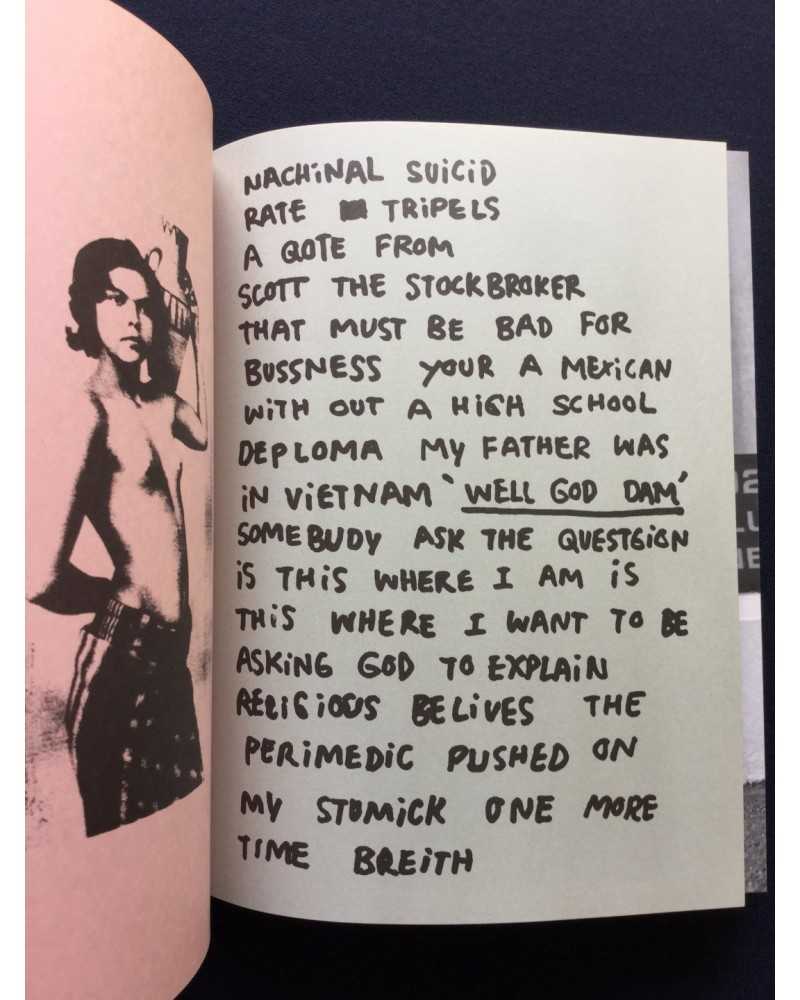 NACHiNAL SUiCiD
RATE TRiPELS
A QOTE FROM
SCOTT THE STOCKBROKER
THAT MUST BE BAD FOR
BUSSNESS YOUR A MEXiCAN
WiTH OUT A HiGH SCHOOL
DEPLOMA MY FATHER WAS
iN ViETNAM ‘WELL GOD DAM’
SOMEBUDY ASK THE QUESTGiGN
iS THiS WHERE I AM iS
THiS WHERE I WANT TO BE
ASKiNG GOD TO EXPLAiN
RELiGiOUS BELiVES THE
PERiMEDiC PUSHED ON
MY STUMiCK ONE MORE
TiME BREiTH